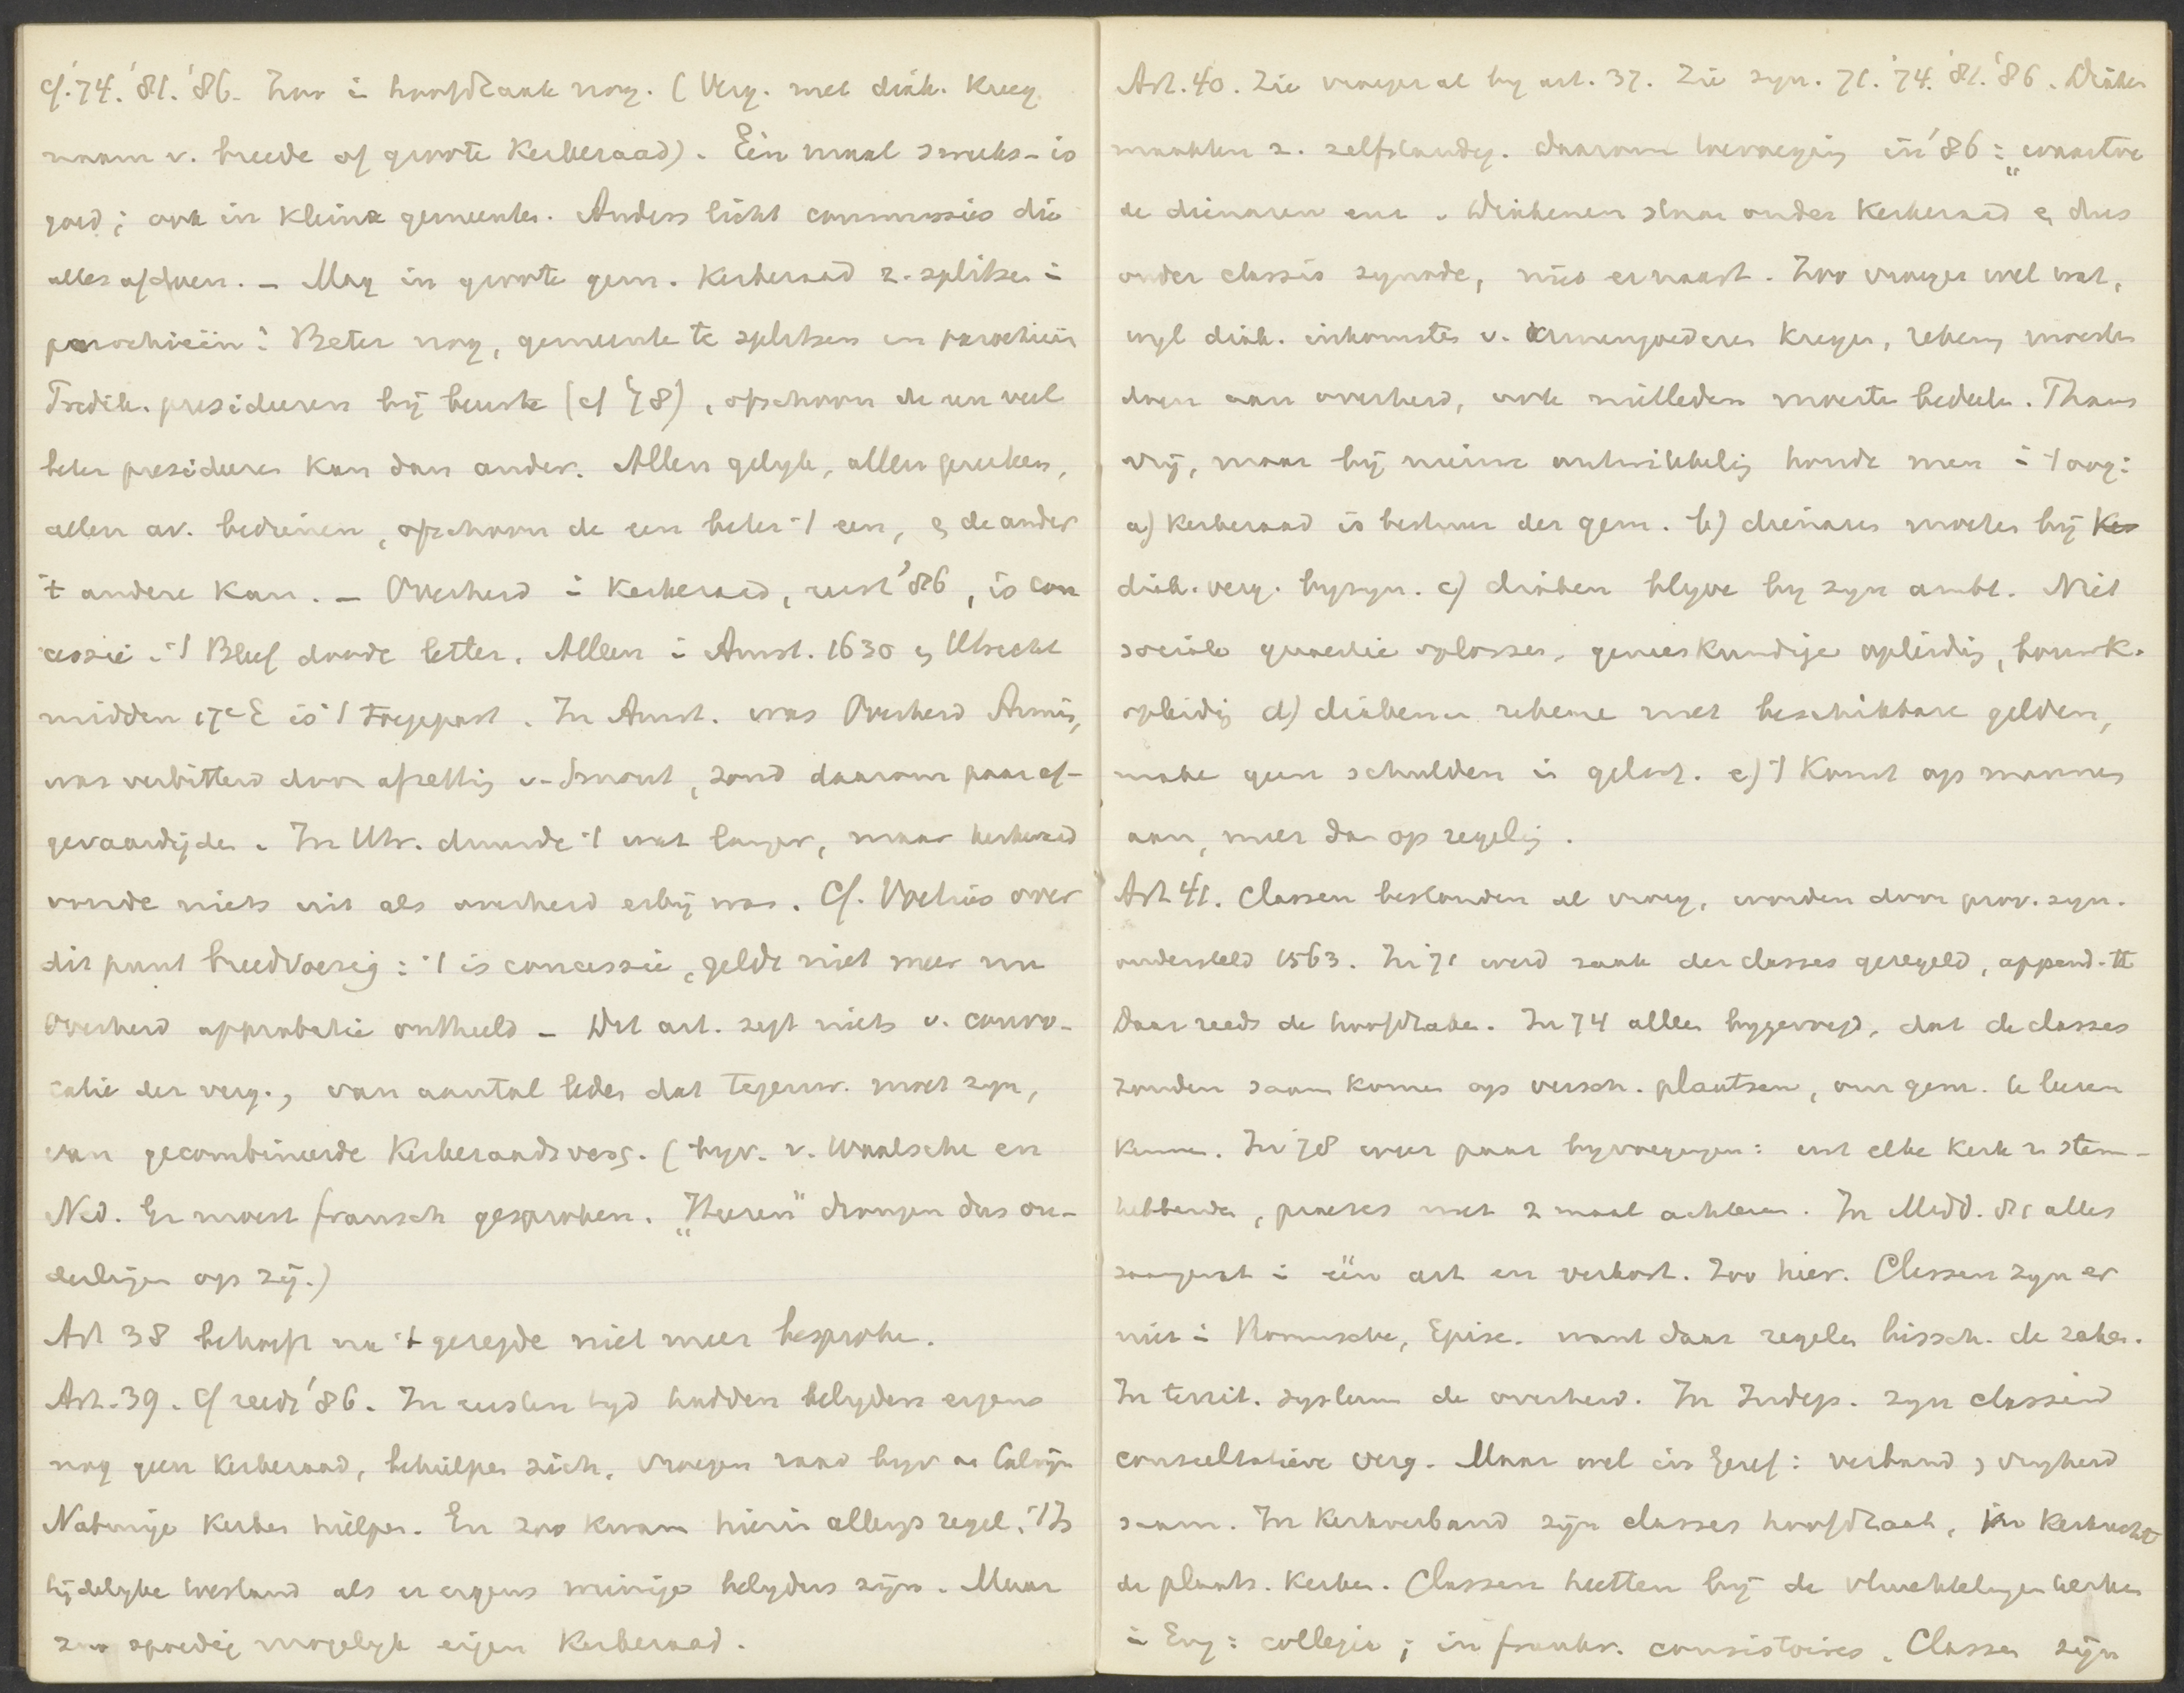 cf. '74. '81. '86. Zoo i hoofdzaak nog. (Verg. met diak. kreeg
naam v. breede of groote Kerkeraad). Een maal 's weeks is
goed; ook in kleine gemeenten. Anders licht commissies die
alles afdoen. – Mag in groote gem. Kerkeraad z. splitsen i
parochieën? Beter nog, gemeente te splitsen in parochieën
Predik. presideeren bij beurte (cf '78), ofschoon de een veel
beter presideeren kan dan ander. Allen gelijk, allen preeken,
allen av. bedienen, ofschoon de een beter 't een, en de ander
't andere kan. – Overheid i Kerkeraad, eerst '86, is con
cessie. 't Bleef doode letter. Alleen i Amst. 1630 en Utrecht
midden 17e E is 't toegepast. In Amst. was Overheid Armin.,
was verbitterd door afzetting v. Smout, zond daarom paar af-
gevaardigden. In Utr. duurde 't wat langer, maar kerkeraad
voerde niets uit als overheid erbij was. Cf. Voetius over
dit punt breedvoerig: 't is concessie, gelde niet meer nu
Overheid approbatie onthield – Dit art. zegt niets v. convo-
catie der verg., van aantal leden dat tegenw. moet zijn,
van gecombineerde Kerkeraadsverg. (bijv. v. Waalsche en
Ned. Er moest fransch gesproken. "Heeren" drongen dus ou-
derlingen op zij.)
Art 38 behoeft na 't gezegde niet meer besproken.
Art. 39. Cf reeds '86. In eersten tijd hadden belijders ergens
nog geen Kerkeraad, behielpen zich, vroegen raad bijv aan Calvijn
Naburige Kerken hielpen. En zoo kwam hierin allengs regel. 't Is
tijdelijke toestand als er ergens weinige belijders zijn. Maar
zoo spoedig mogelijk eigen Kerkeraad.
Art. 40. Zie vroeger al bij art. 37. Zie syn. 71. '74. '81. '86. Diaken
maakten z. zelfstandig. daarom toevoeging in '86: "waartoe
de dienaren enz. Diakenen staan onder Kerkeraad en dus
onder classis synode, niet ernaast. Zoo vroeger wel wat,
wijl diak. inkomsten v. armengoederen kregen, rekening moesten
doen aan overheid, ook nietleden moesten bedeelen. Thans
vrij, maar bij nieuwe ontwikkeling houde men i 't oog:
a) Kerkeraad is bestuur der gem. b) dienaren moeten bij
diak. verg. bijzijn. c) diaken blijve bij zijn ambt. Niet
sociale quaestie oplossen, geneeskundige opleiding, houwk.
opleiding d) diakenen rekene met beschikbare gelden,
make geen schulden in geloof. e) 't Komt op mannen
aan, meer dan op regeling.
Art 41. Classen bestonden al vroeg, worden door prov. syn.
ondersteld 1563. In 71 werd zaak der classes geregeld, append. II
Daar reeds de hoofdzaken. In 74 alleen bijgevoegd, dat de classes
zouden saam komen op versch. plaatsen, om gem. te leeren
kennen. In '78 weer paar bijvoegingen: uit elke Kerk 2 stem-
hebbenden, praeses niet 2 maal achtereen. In Midd. 81 alles
saamgevat i één art en verkort. Zoo hier. Classen zijn er
niet i Roomsche, Episc. want daar regelen bissch. de zaken.
In territ. systeem de overheid. In Indep. zijn classen
consultatieve verg. Maar wel in Geref: verband en vrijheid
saam. In Kerkverband zijn classes hoofdzaak, in Kerkrecht
de plaats. Kerken. Classen heetten bij de vluchtelingen kerken
i Eng: collegia; in frankr. consistoires. Classen zijn